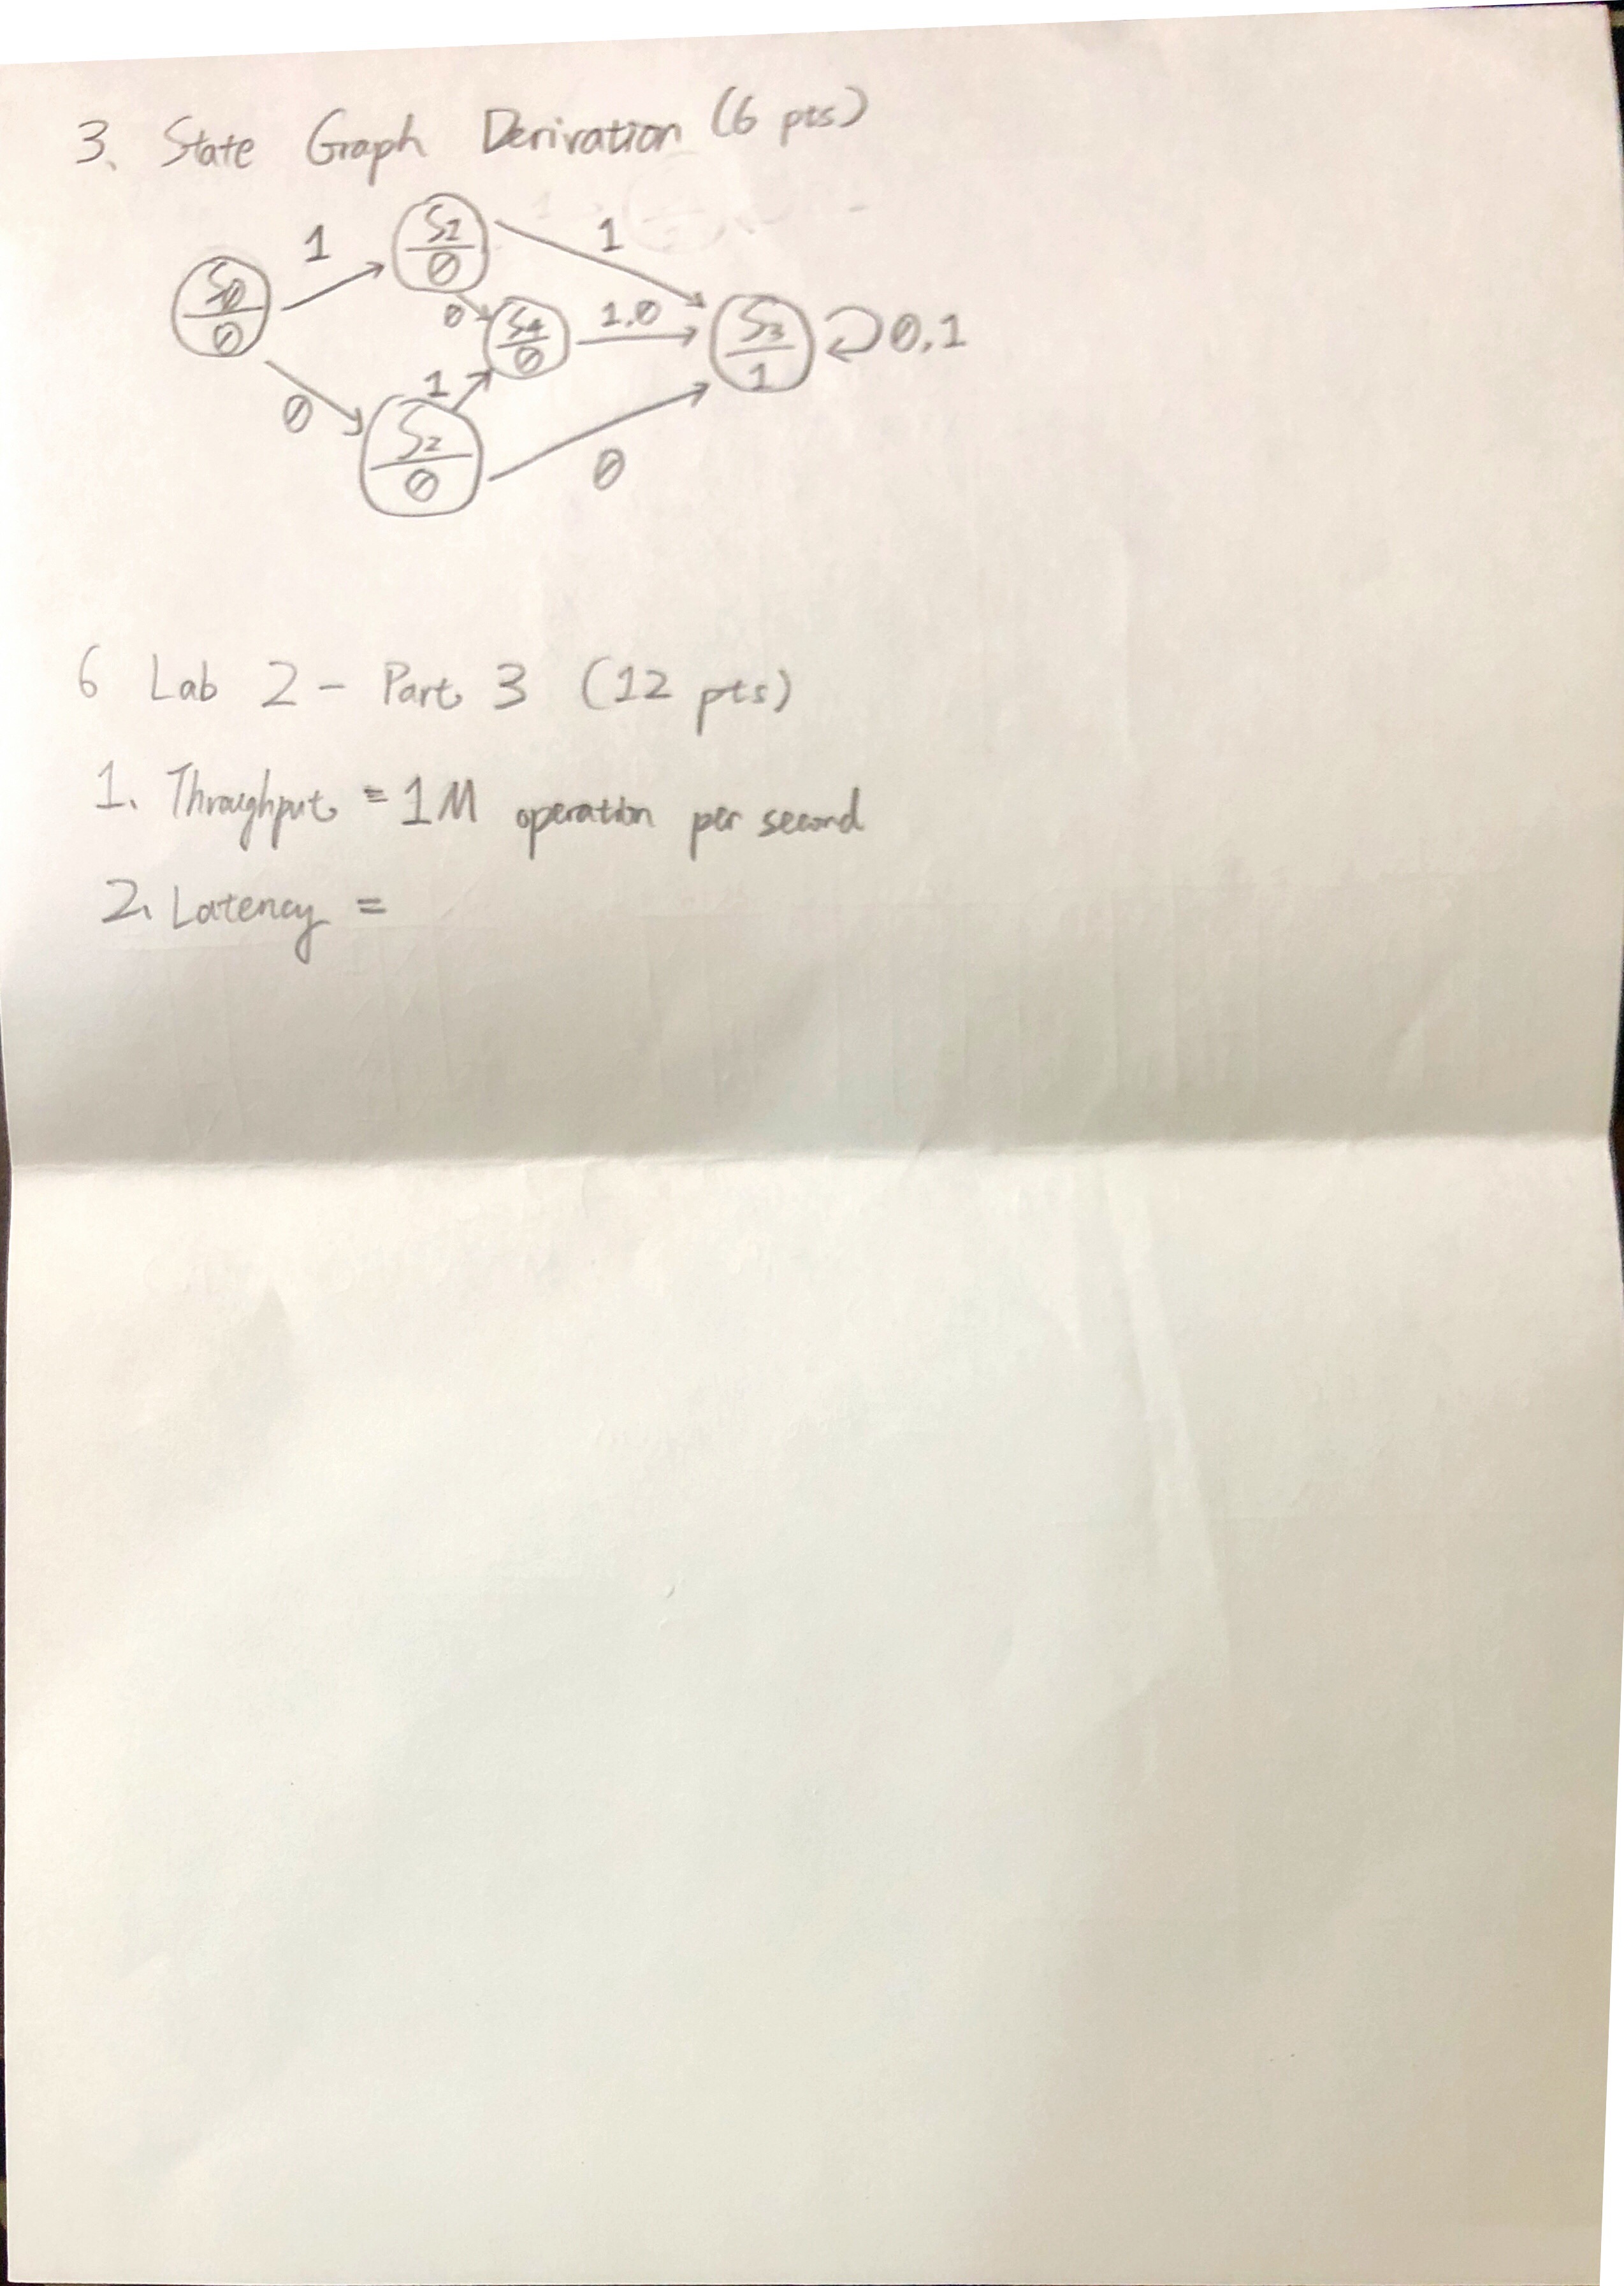 3. State Graph Derivation (6 pts)
1 S2 0 1
S0 0 0 S4 0 1.0 S3 1 0.1
0 1 S2 0 0
6 Lab 2 - Part 3 (12 pts)
1. Throughput = 1M operation per second
2. Latency =